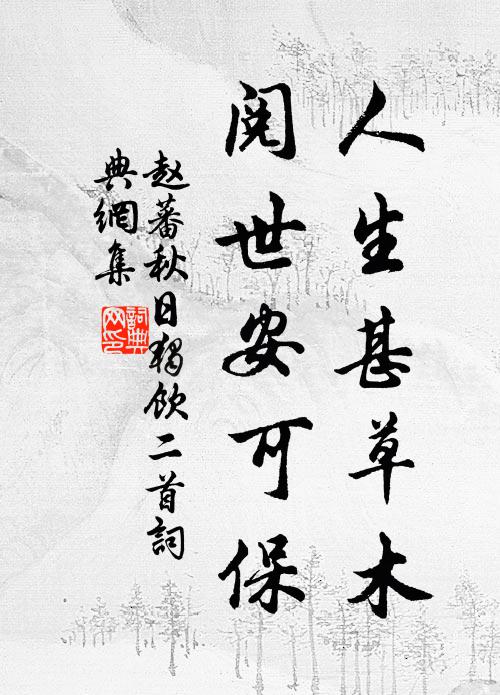 人生甚草木
阅世安可保
赵蕃秋日独饮二首詞
典網集
詞典
网印